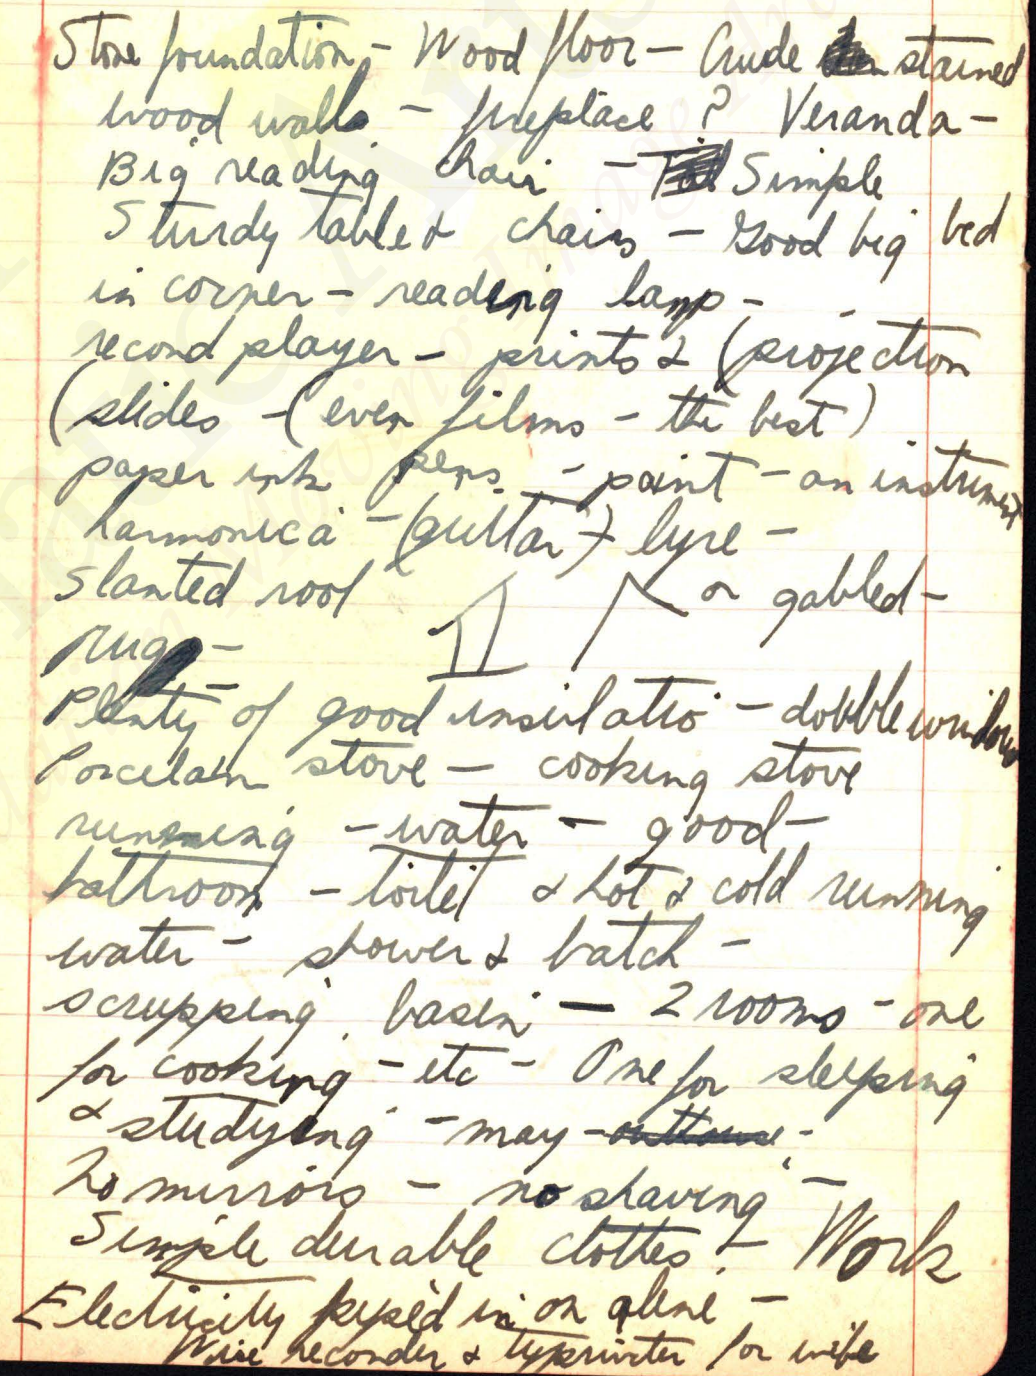 Stone foundation - Wood floor - Crude stained
wood walls - fireplace ? Veranda -
Big reading chair - Simple
Sturdy table & chairs - Good big bed
in corner - reading lamp -
record player - prints & (projection
(slides - (even films - the best)
paper ink pens - paint - an instrument
harmonica - (guitar) lyre -
Slanted roof or gabled -
rugs -
Plenty of good insulatio - dobble windows
Porcelain stove - cooking stove
running - water - good -
bathroom - toilet & hot & cold running
water - shower & batch -
scrupping basin - 2 rooms - one
for cooking - etc - One for sleeping
& studying - may - outhouse -
No mirrors - no shaving -
Simple durable clothes - Work
Electricity in on
Wire recorder & typriter for wife